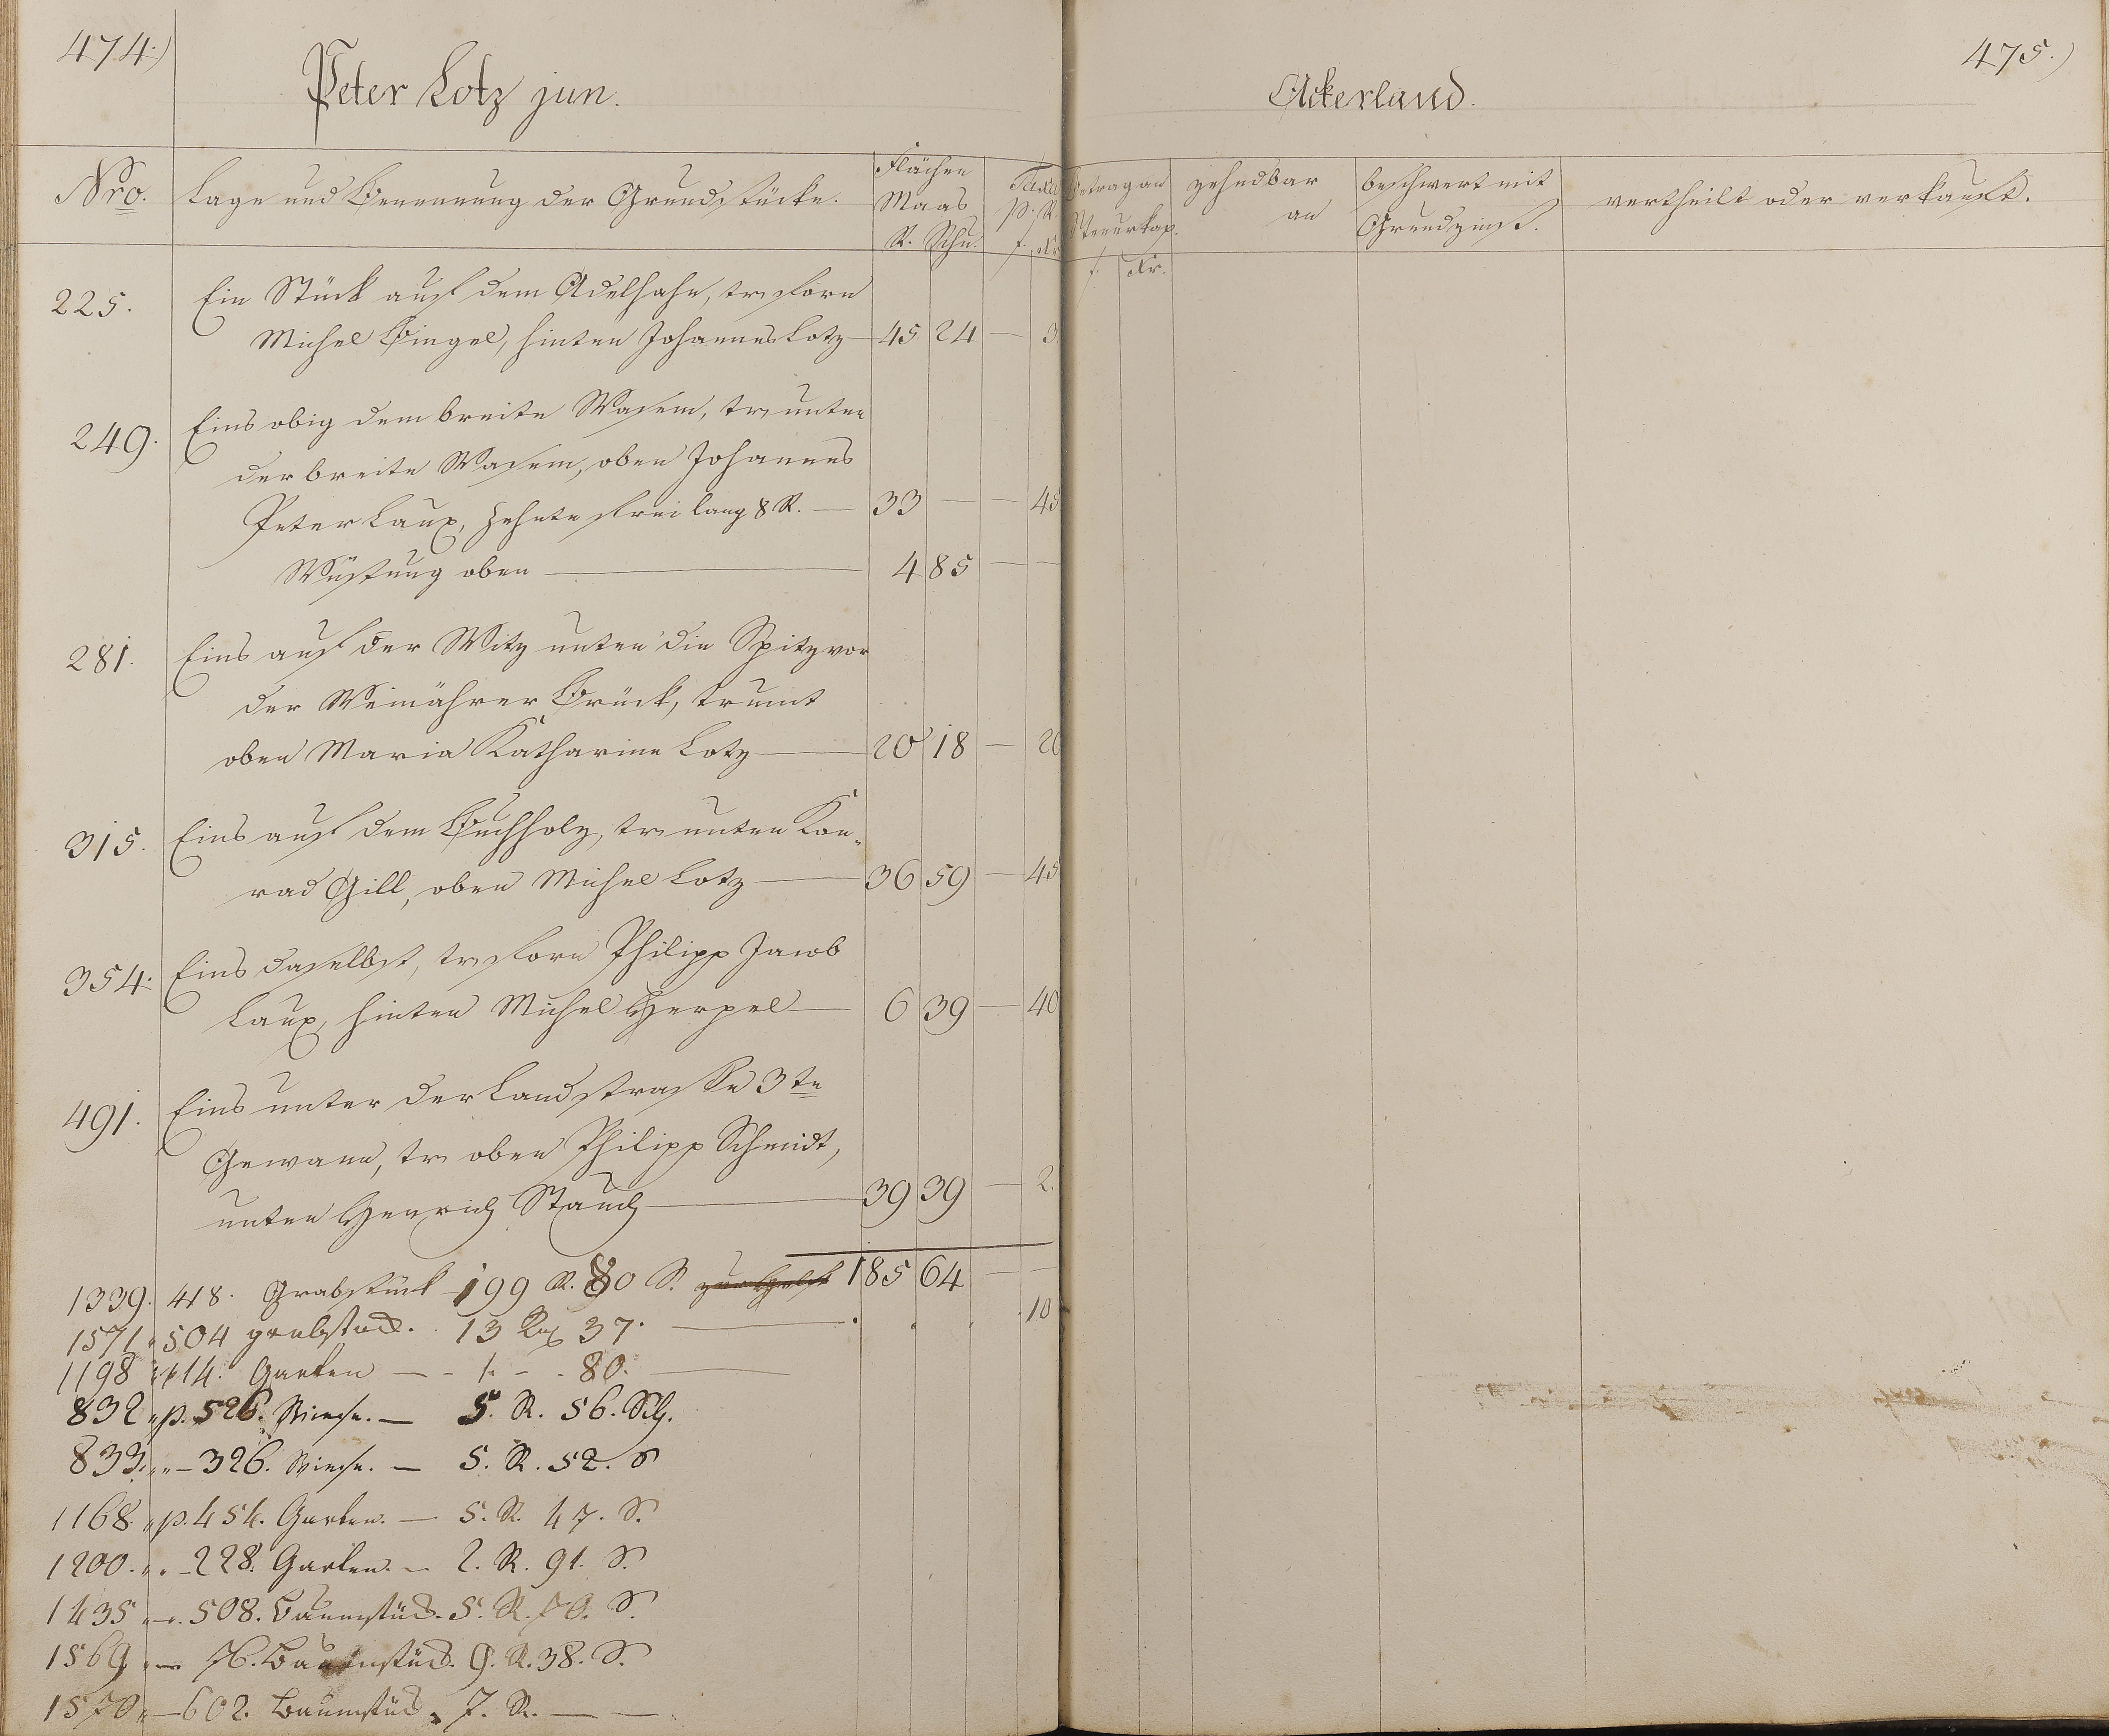 474.)
Peter Lotz jun.
Nro.
Lage und Benennung der Grundstücke.
Flächen
Maas
R. Schu.
Taxa
p. R.
f. Kr
225. Ein Stück auf dem Adelhahn, tr. forn
Michel Bingel, hinten Johannes Lotz — 45 24 — 3
249. Eins obig dem breite Wasem, tr. unten
der breite Wasem, oben Johannes
Peter Laux, Zehnte frei lang 8 R. — 33 — — 45
Wüstung oben — 4 85 — —
281. Eins auf der Witz unten die Spitz vor
der Weinährer Brück, trumt
oben Maria Katharina Lotz — 20 18 — 20
315. Eins auf dem Buchholz, tr. unten Kon-
rad Gill, oben Michel Lotz — 36 59 — 45
354. Eins daselbst, tr. forn Philipp Jacob
Laux, hinten Michel Herpel — 6 39 — 40
491. Eins unter der Landstrasse 3te
Gewann, tr. oben Philipp Schmidt,
unten Henrich Stauch — 39 39 — 2.
1339. 418. Grabstück 199 R. 80 S. zur Helft 185 64 — —
1571 " 504 grabstück. 13 Ru 37. — . 10
1198 " p 14. Garten — - 1. - - 80. —
832 " p. 526. Wiese. — 5. R. 56. Sch.
833. " " — 326. Wiese. — 5. R. 52. S
1168. " p. 454. Garten. — 5. R. 47. S.
1200. " . - 228. Garten. — 2. R. 91. S.
1435 " — . 508. Baumstück. 5. R. 70. S.
1569 " — 76. Baumstück. 9. R. 38. S.
1570 " — 602. Baumstück. 7. R. — —
475.)
Ackerland.
Betrag an
Steuerkap.
f. Kr.
zehndbar
an
beschwert mit
Grundzinß.
vertheilt oder verkauft.